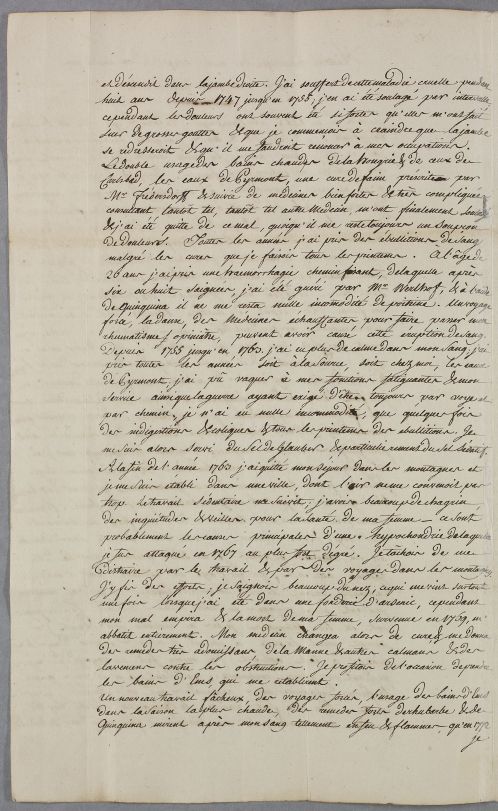 et descendit dans la jambe droite. J'ai souffert de cette maladie cruelle pendant
huit ans depuis 1747 jusqu'en 1755, j'en ai été soulagé par intervalle
cependant les douleurs ont souvent été si fortes qu'elles m'ont fait
suer de grosses gouttes & que je commencois à craindre que la jambe
se retreciroit & qu'il me faudroit renoncer à mes occupations.
Le double usage des bains chauds de la Hongrie & de ceux de
Carlsbad, les eaux de Pyrmont, une cure de bain prescrite par
Mr. Fredersdorff & suivie de medecines bien fortes & très compliquées
consultant tantôt tel, tantôt tel autre Medecin, m'ont finalement soulagé
& j'ai été quitte de ce mal, quoiqu'il me reste toujours un soupçon
de douleurs. Toutes les années j'ai pris des ebullitions de sang
malgré les cures que je faisois tous les printems. A l'âge de
26 ans j'ai pris une haemorrhagie chemin faisant, de laquelle après
six ou huit saignées, j'ai été guéri par Mr. Werlhoff, & à l'aide
de Quinquina il ne me resta nulle incommodité de poitrine. Un voyage
forcé, la danse, des Medecines echauffantes pour faire passer mon
rhumatisme opiniatre, peuvent avoir causé cette eruption de sang.
Depuis 1755 jusqu'en 1763. j'ai eu plus de calme dans mon sang, j'ai
pris toutes les années soit à la source, soit chez moi, les eaux
de Pyrmont, j'ai pû vaquer à mes fonctions fatiguantes & mon
service ainsi que la guerre ayant exigé d'être toujours par voye et
par chemin, je n'ai eu nulle incommodité, que quelques fois
des indigestions & coliques & tous les printems des ebullitions. Je
me suis alors servi du Sel de Glauber & particulierement du Sel
A la fin de l'année 1763 j'ai quitté mon sejour dans les montagnes et
je me suis etabli dans une ville, dont l'air ne me convenoit pas
trop. Le travail sedentaire me suivit, j'avois beaucoup de chagrin
des inquiétudes & veilles pour la santé de ma femme — ce sont
probablement les causes principales d'une hypochondrie de laquelle
je fus attaqué en 1767 au plus fort degré. Je tachois de me
distraire par le travail & par des voyages dans les montagnes
J'y fis des efforts, je saignois beaucoup du nez, ce qui me vint surtout
une fois lorsque j'ai été dans une fonderie d'arsenic, cependant
mon mal empira & la mort de ma femme, survenue en 1769, m'
abbatit entierement. Mon medecin changea alors de cure & me donna
des remedes très adoucissans, de la Manne & autres calmans & des
lavemens contre les obstructions. Je profitois de l'occasion de prendre
les bains d'Ems qui me rétablirent.
Un nouveau travail facheux, des voyages forcés, l'usage des bains d'Ems
dans la saison la plus chaude, des remedes forts de rhubarbe & de
Quinquina mirent après mon sang tellement en feu & flammes, qu'en 1772
je